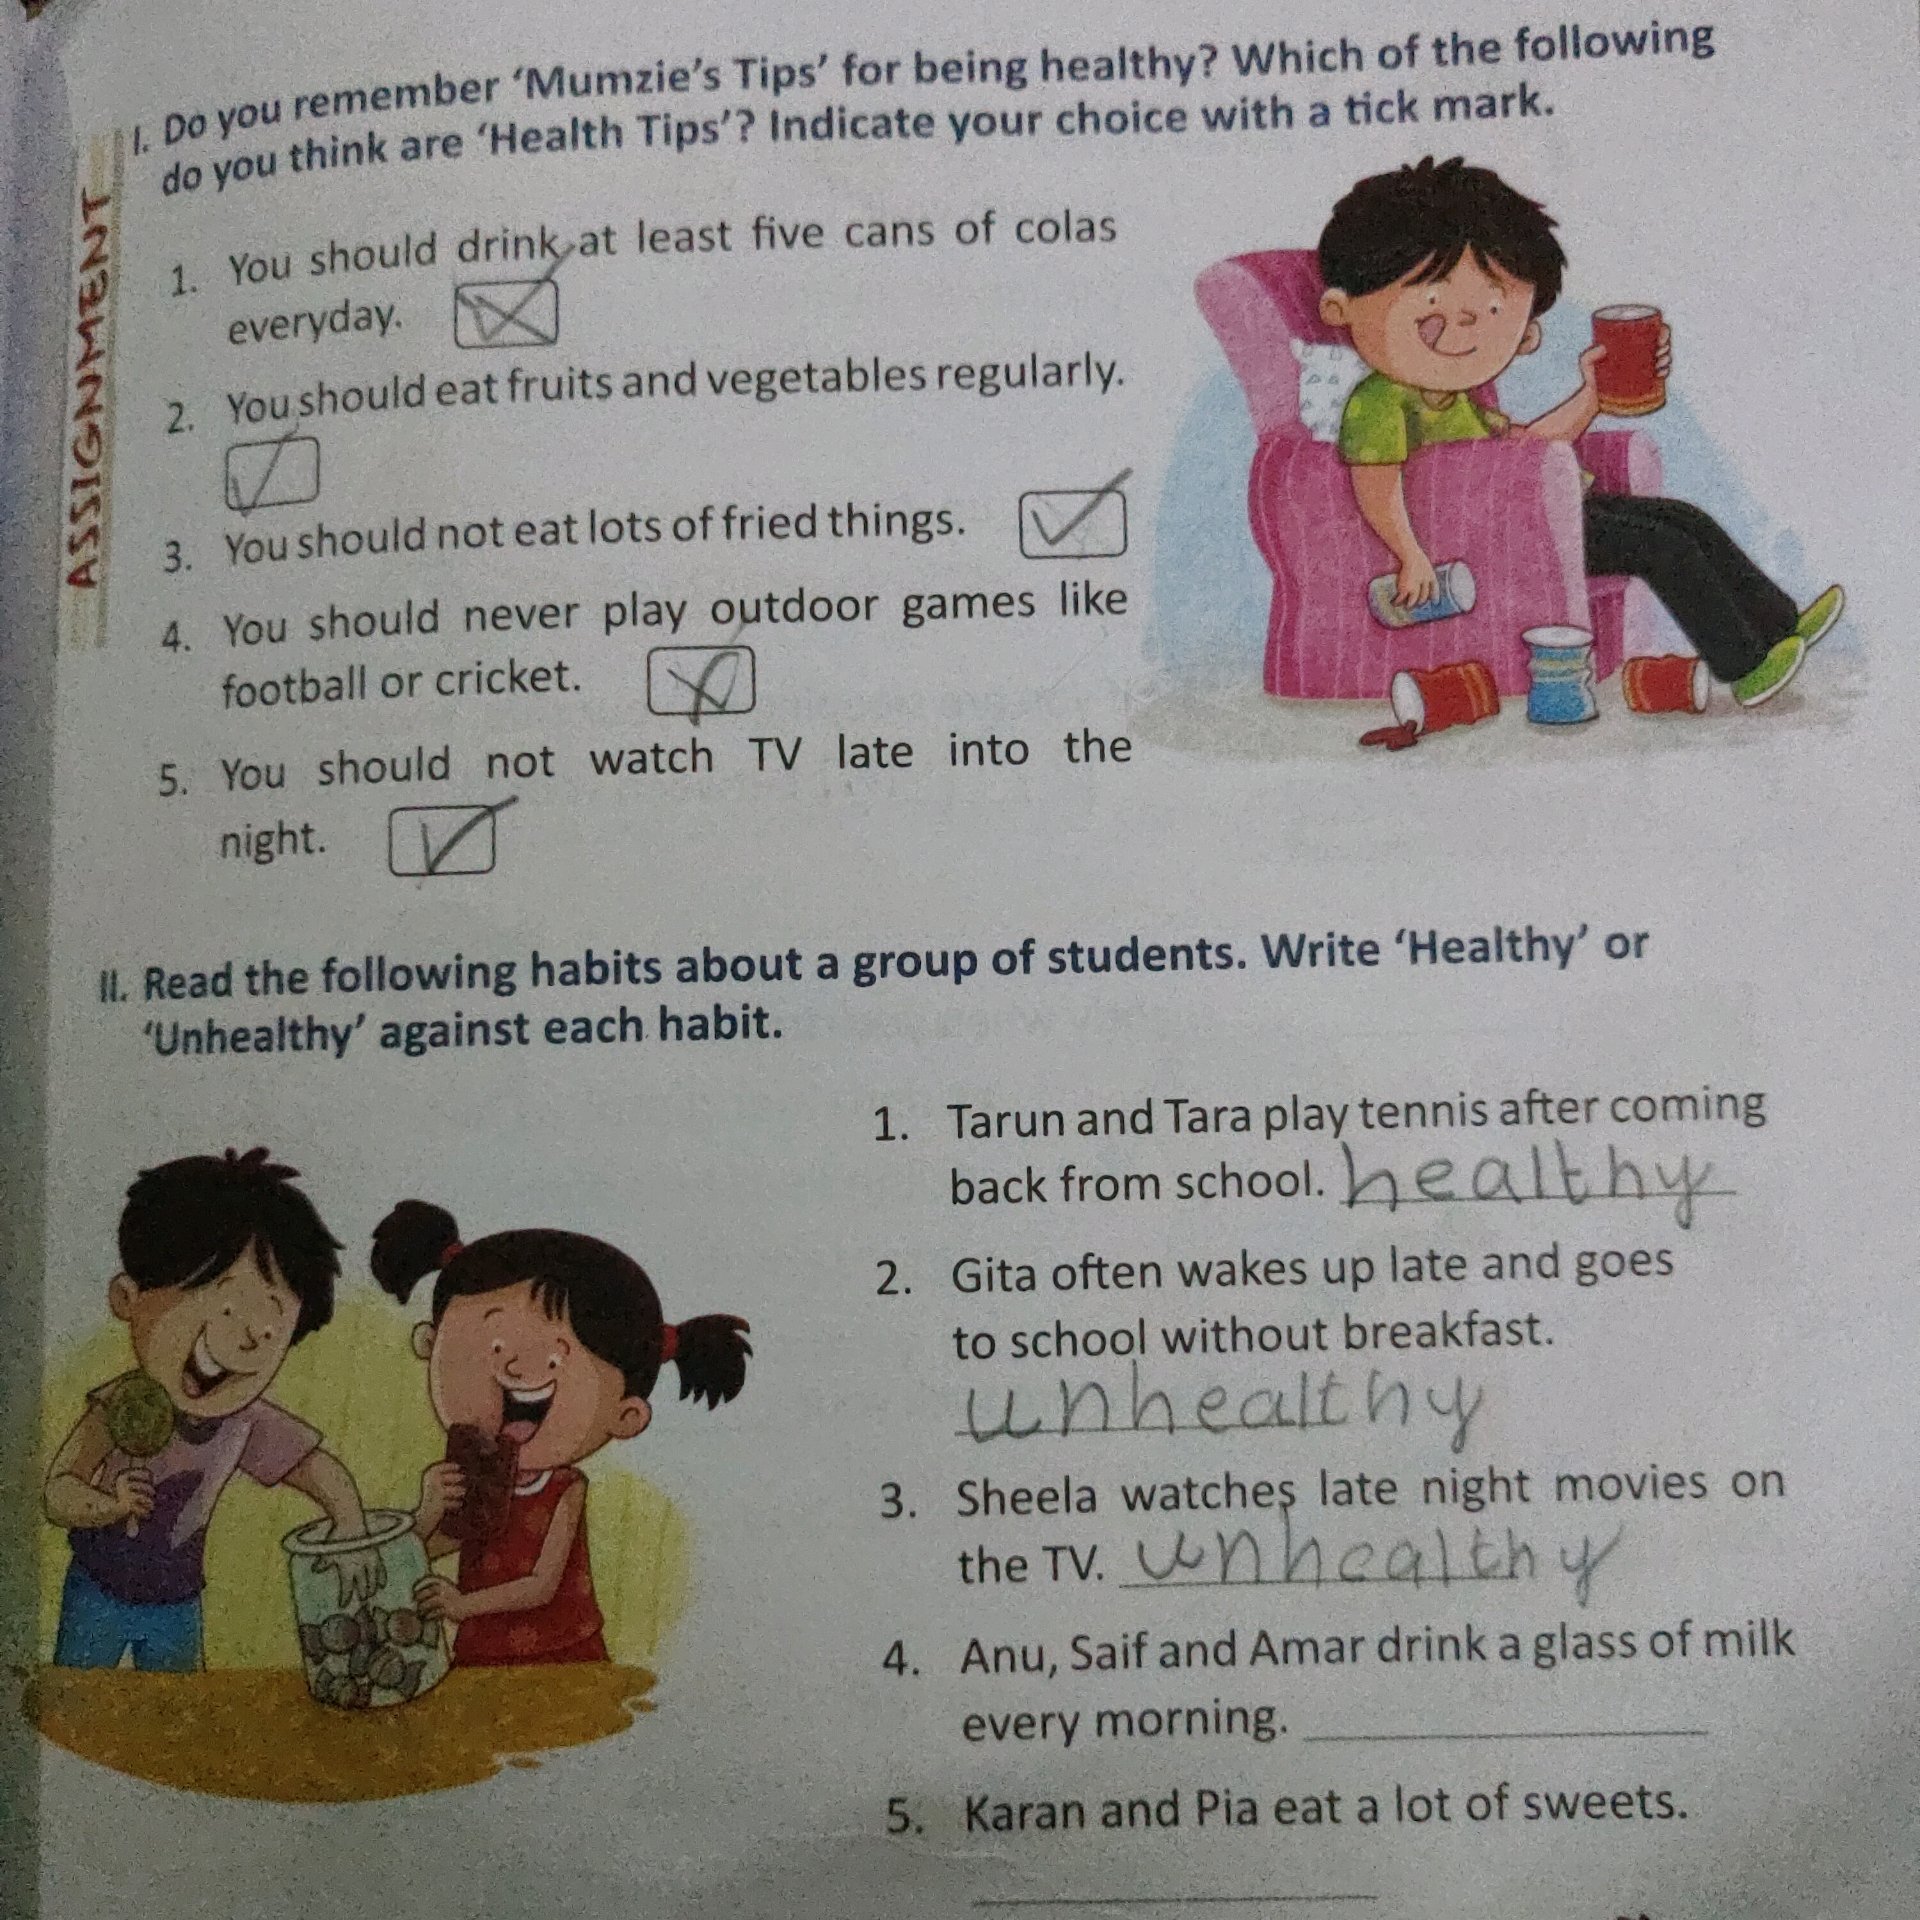 I. Do you remember ‘Mumzie’s Tips’ for being healthy? Which of the following
do you think are ‘Health Tips’? Indicate your choice with a tick mark.
ASSIGNMENT
1. You should drink at least five cans of colas
everyday.
2. You should eat fruits and vegetables regularly.
3. You should not eat lots of fried things.
4. You should never play outdoor games like
football or cricket.
5. You should not watch TV late into the
night.
II. Read the following habits about a group of students. Write ‘Healthy’ or
‘Unhealthy’ against each habit.
1. Tarun and Tara play tennis after coming
back from school. healthy
2. Gita often wakes up late and goes
to school without breakfast.
unhealthy
3. Sheela watches late night movies on
the TV. unhealthy
4. Anu, Saif and Amar drink a glass of milk
every morning.
5. Karan and Pia eat a lot of sweets.